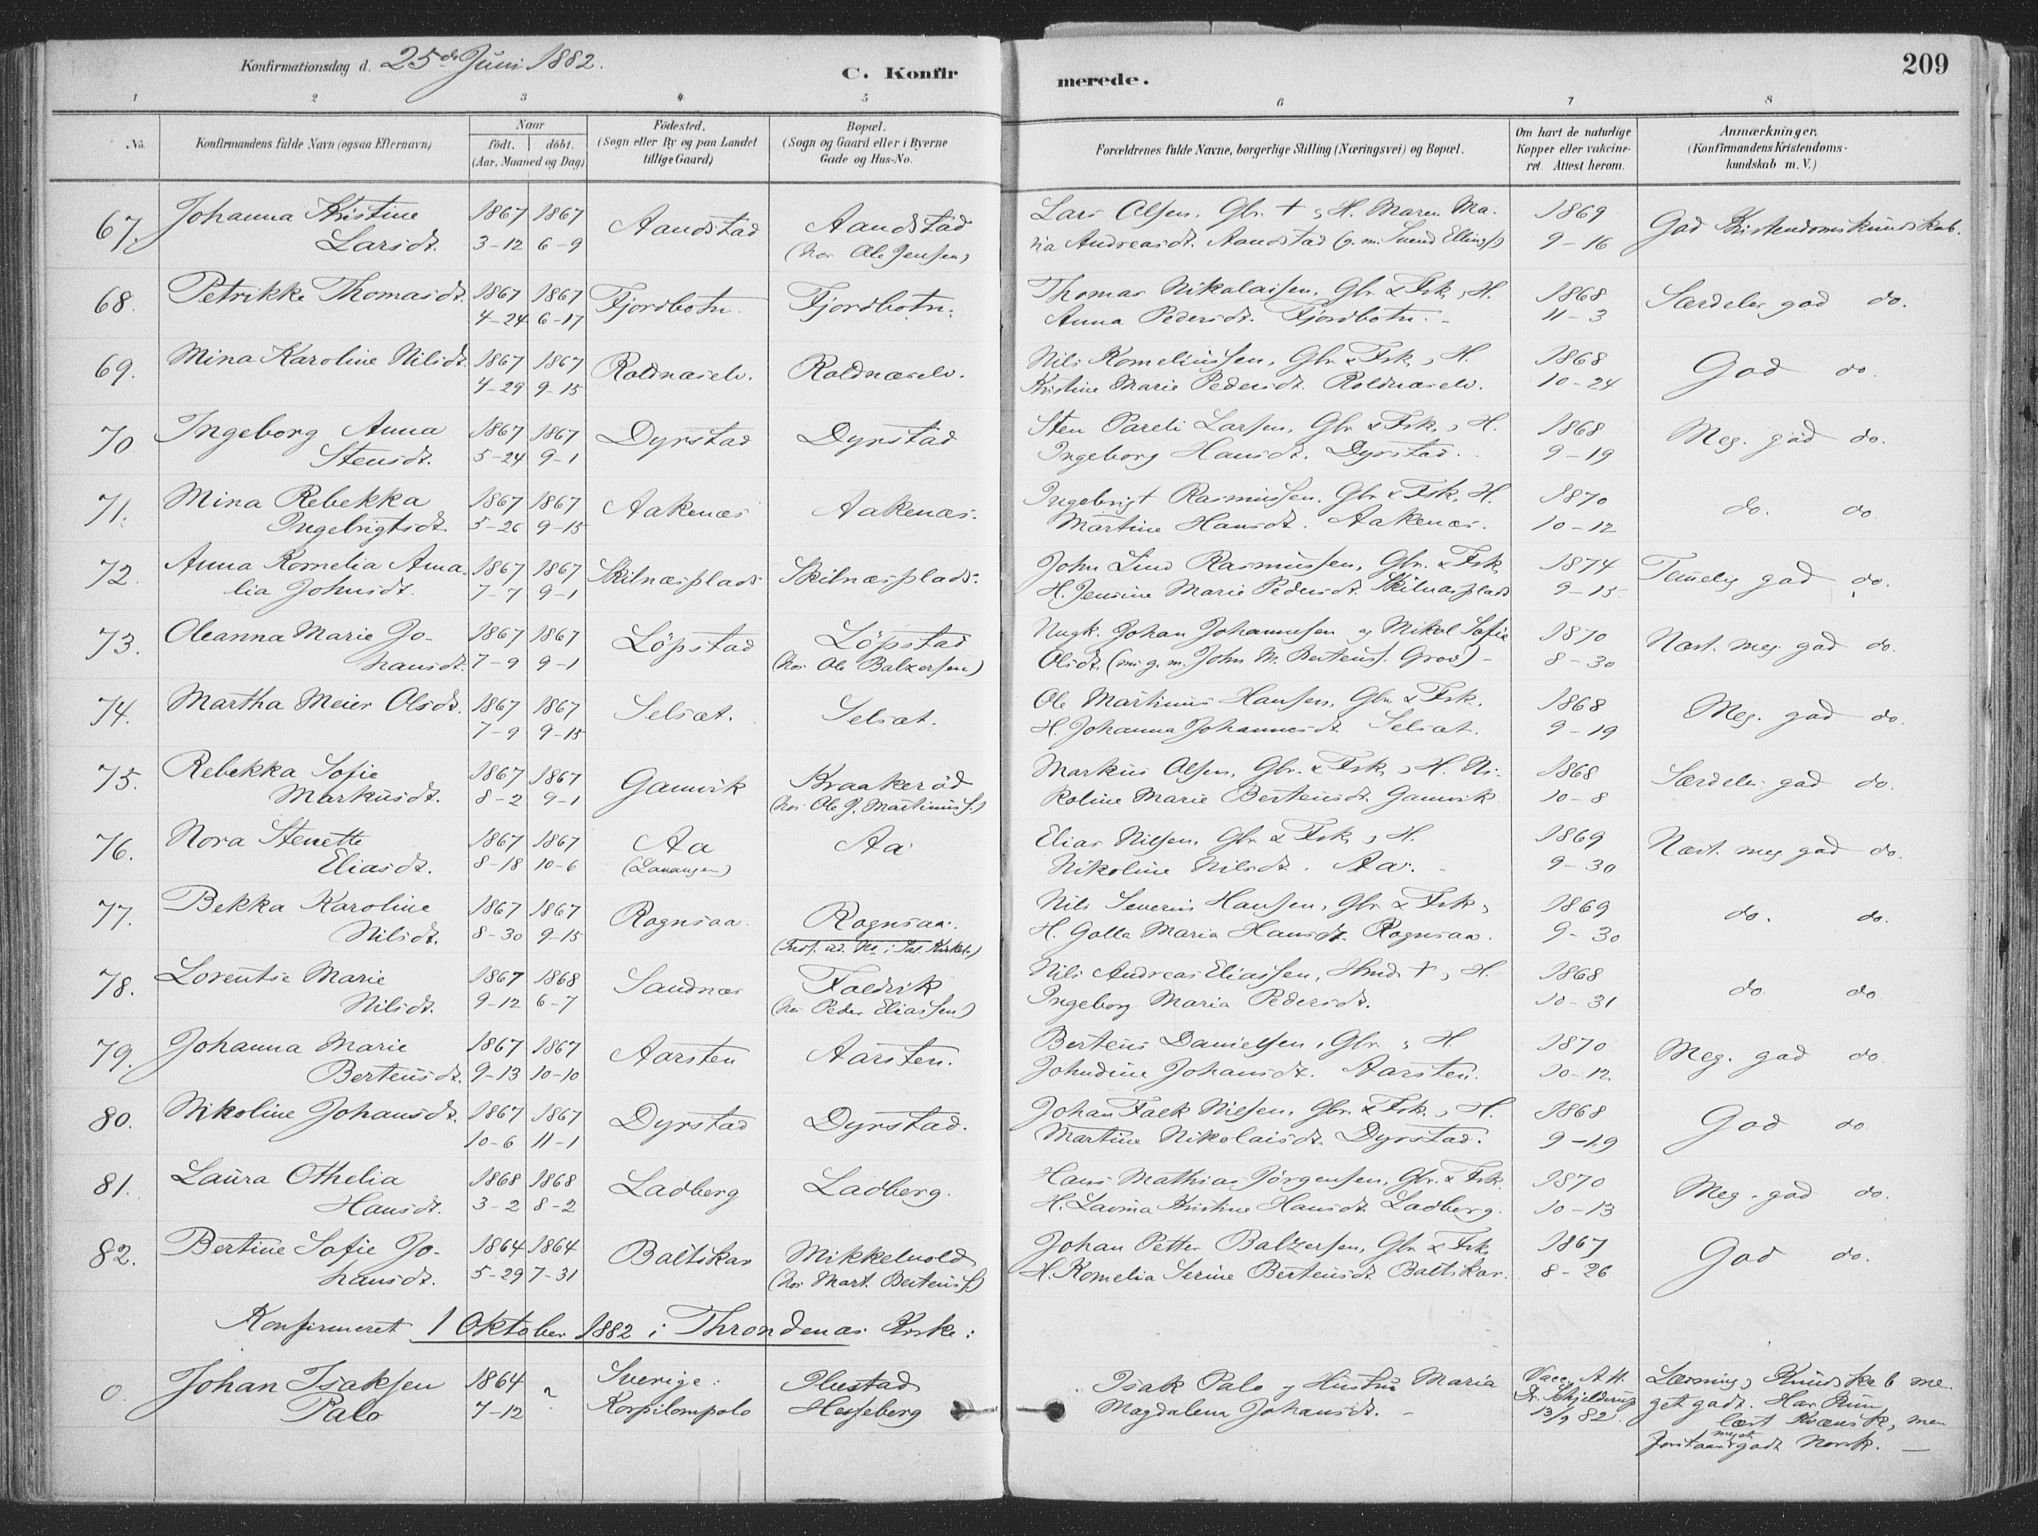 Konfirmationsdag d. 25de Juni 1882.
C. Konfir
merede.
209
1 2 3 4 5 6 7 8
No.
Konfirmandens fulde Navn (ogsaa Efternavn)
Naar
født. døbt.
(Aar, Maaned og Dag)
Fødested.
(Sogn eller By og paa Landet
tillige Gaard)
Bopæl.
(Sogn og Gaard eller i Byerne
Gade og Hus-No.
Forældrenes fulde Navne, borgerlige Stilling (Næringsvei) og Bopæl.
Om havt de naturlige
Kopper eller vakcine-
ret. Attest herom.
Anmærkninger.
(Konfirmandens Kristendoms-
kundskab m. V.)
67. Johanna Kristine 1867 1867 Aandstad Aandstad Lars Olsen, Gbr. † , H. Maren Ma- 1869 God Kristendomskundskab.
Larsdt. 3-12 6-9 (hos Ole Jensen) ria Andreasdt. Aandstad (g. m. Svend Ellingss) 9-16
68. Petrikke Thomasdt. 1867 1867 Fjordbotn. Fjordbotn. Thomas Nikolaisen, Gbr. & Fsk., H. 1868 Særdeles god do.
4-24 6-17 Anna Pedersdt. Fjordbotn. 11-3
69. Mina Karoline Nilsdt. 1867 1867 Roldnæselv. Roldnæselv. Nils Korneliussen, Gbr. & Fsk., H. 1868 God do.
4-29 9-15 Kristine Marie Pedersdt. Roldnæselv. 10-24
70. Ingeborg Anna 1867 1867 Dyrstad Dyrstad Sten Pareli Larsen, Gbr. & Fsk., H. 1868 Meg. god do.
Stensdt. 5-24 9-1 Ingeborg Hansdt. Dyrstad. 9-19
71. Mina Rebekka 1867 1867 Aakenæs Aakenæs. Ingebrigt Rasmussen, Gbr. & Fsk. H. 1870 do. do
Ingebrigtsdt. 5-26 9-15 Martine Hansdt. Aakenæs. 10-12
72. Anna Kornelia Ama- 1867 1867 Skilnæsplads Skilnæsplads. John Lind Rasmussen, Gbr. & Fsk, 1874 Temelig god do.
lia Johnsdt. 7-7 9-1 H. Jensine Marie Pedersdt. Skilnæsplads 9-15
73. Oleanna Marie Jo- 1867 1867 Löpstad Löpstad Ungk. Johan Johannesen og Nikol. Sofie 1870 Næst. meg god do.
hansdt. 7-9 9-1 (hos Ole Balzersen) Olsdt. (nu g. m. John M. Bertheus. Grov) - 8-30
74. Martha Meier Olsdt. 1867 1867 Selsæt. Selsæt. Ole Martinus Hansen, Gbr. & Fsk. 1868 Meg. god do.
7-9 9-15 H. Johanna Johannesdt Selsæt. 9-19
75. Rebekka Sofie 1867 1867 Gamvik Kraakeröd Markus Olsen, Gbr. & Fsk., H. Ni- 1868 Særdeles god do.
Markusdt. 8-2 9-1 (hos Ole J. Martinuss.) koline Marie Berteusdt. Gamvik 10-8
76. Nora Stenette 1867 1867 Aa Aa Elias Nilsen, Gbr. & Fsk., H. 1869 Næst. meg god do.
Eliasdt. 8-18 10-6 (Lavangen) Nikoline Nilsdt. Aa. 9-30
77. Bekka Karoline 1867 1867 Rognsaa. Rognsaa. Nils Severin Hansen, Gbr. & Fsk, 1869 do. do.
Nilsdt. 8-30 9-15 H. Golla Maria Hansdt. Rognsaa. 9-30
78. Lorentse Marie 1867 1868 Sandnæs Foldvik Nils Andreas Eliassen, Hmd. † , H. 1868 do do
Nilsdt. 9-12 6-7 (hos Peder Eliassen) Ingeborg Maria Pedersdt. 10-31
79. Johanna Marie 1867 1867 Aarsten Aarsten. Berteus Danielsen, Gbr. , H. 1870 Meg. god do
Berteusdt. 9-13 10-10 Johndine Johansdt. Aarsten. 10-12
80. Nikoline Johansdt. 1867 1867 Dyrstad Dyrstad. Johan Falk Nilsen, Gbr. & Fsk., H. 1868 God do
10-6 11-1 Martine Nikolaisdt. Dyrstad. 9-19
81. Laura Othelia 1868 1868 Ladberg Ladberg. Hans Mathias Jörgensen, Gbr. & Fsk. 1870 Meg. god do.
Hansdt. 3-2 8-2 H. Lavina Kristine Hansdt. Ladberg. 10-13
82. Bertine Sofie Jo- 1864 1864 Baltskar Mikkelvold Johan Petter Balzersen, Gbr. & Fsk, 1867 God do.
hansdt. 5-29 7-31 (hos Mart. Berteuss) H. Kornelia Serine Berteusdt. Baltskar. 8-26
Konfirmeret 1 Oktober 1882 i Throndenæs Kirke:
0. Johan Isaksen 1864 ? Sverige: Isak Palo og Hustru Maria Vacc. A. tt. Læsning, Kundskab me-
Palo 7-12 Korpilompolo Hesseberg Magdalena Johansdt. - Dr. Schjelderup get godt. Har kun
13/9 82. lært Kvænsk, men
forstaar meget godt Norsk. -